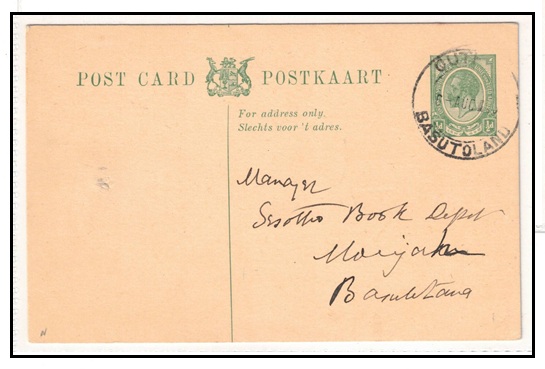 POST CARD POSTKAART
For address only.
Slechts voor 't adres.
BASUTOLAND
Manager
Sesotho Book Depot
Morija
Basutoland